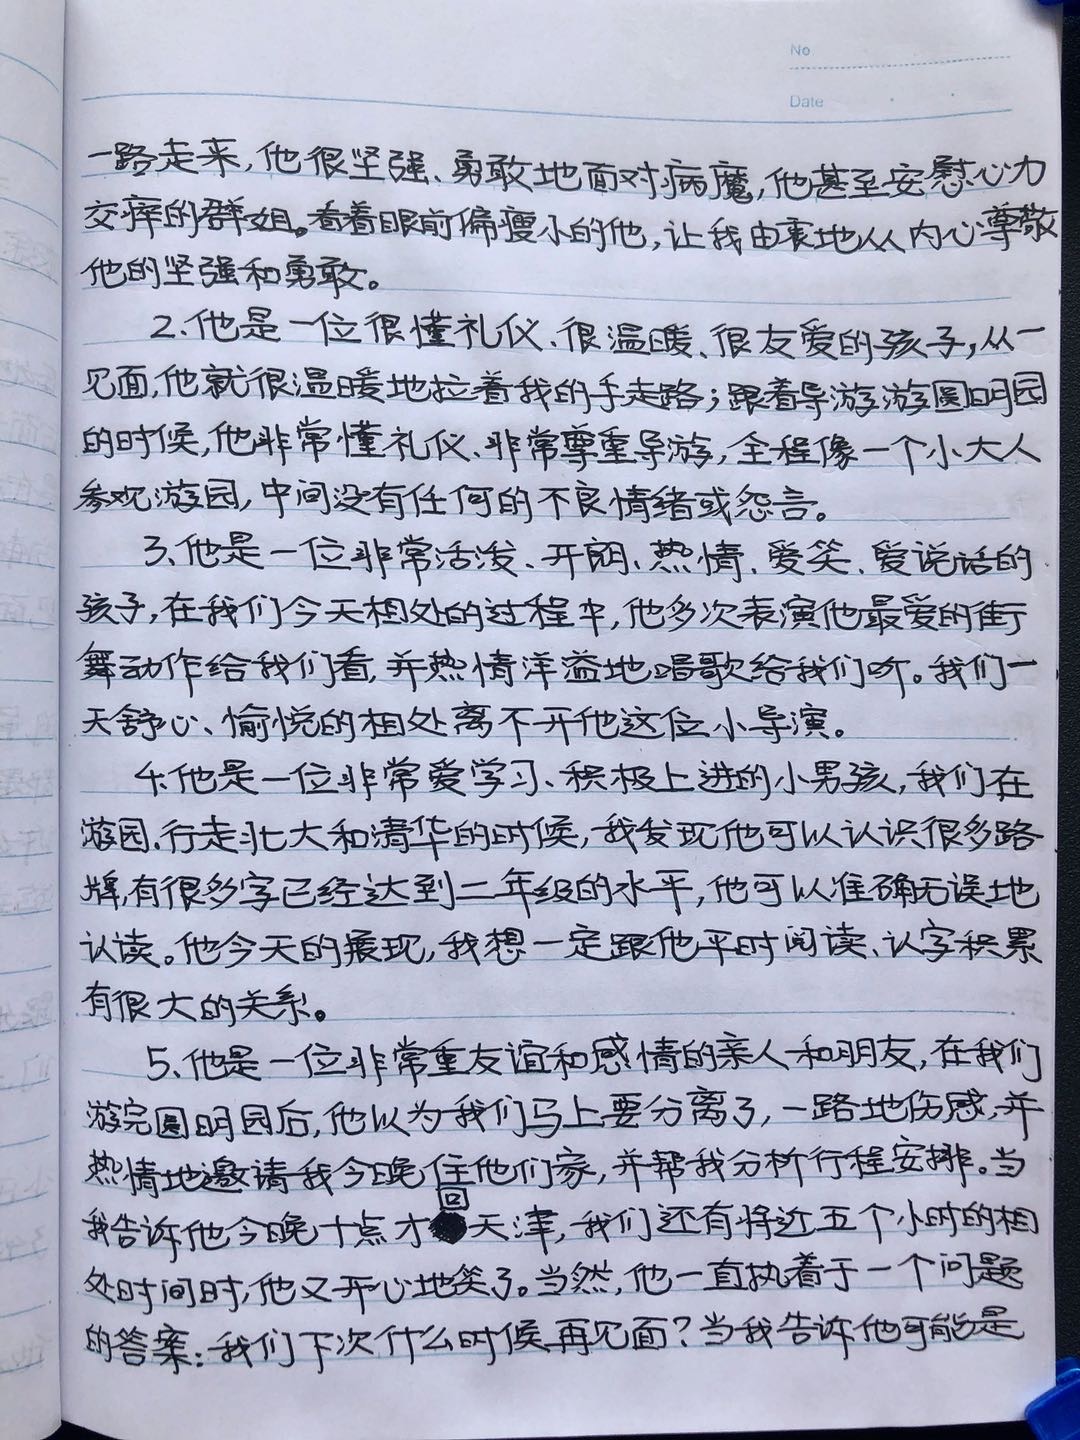 No
Date
一路走来,他很坚强、勇敢地面对病魔,他甚至安慰心力
交瘁的群姐。看着眼前偏瘦小的他,让我由衷地从内心尊敬
他的坚强和勇敢。
2.他是一位很懂礼仪、很温暖、很友爱的孩子,从一
见面,他就很温暖地拉着我的手走路;跟着导游游圆明园
的时候,他非常懂礼仪、非常尊重导游,全程像一个小大人
参观游园,中间没有任何的不良情绪或怨言。
3、他是一位非常活泼、开朗、热情、爱笑、爱说话的
孩子,在我们今天相处的过程中,他多次表演他最爱的街
舞动作给我们看,并热情洋溢地唱歌给我们听。我们一
天舒心、愉悦的相处离不开他这位小导演。
4.他是一位非常爱学习、积极上进的小男孩,我们在
游园、行走北大和清华的时候,我发现他可以认识很多路
牌,有很多字已经达到二年级的水平,他可以准确无误地
认读。他今天的展现,我想一定跟他平时阅读、认字积累
有很大的关系。
5、他是一位非常重友谊和感情的亲人和朋友,在我们
游完圆明园后,他以为我们马上要分离了,一路地伤感,并
热情地邀请我今晚住他们家,并帮我分析行程安排。当
我告诉他今晚十点才回天津,我们还有将近五个小时的相
处时间时,他又开心地笑了。当然,他一直执着于一个问题
的答案:我们下次什么时候再见面?当我告诉他可能是